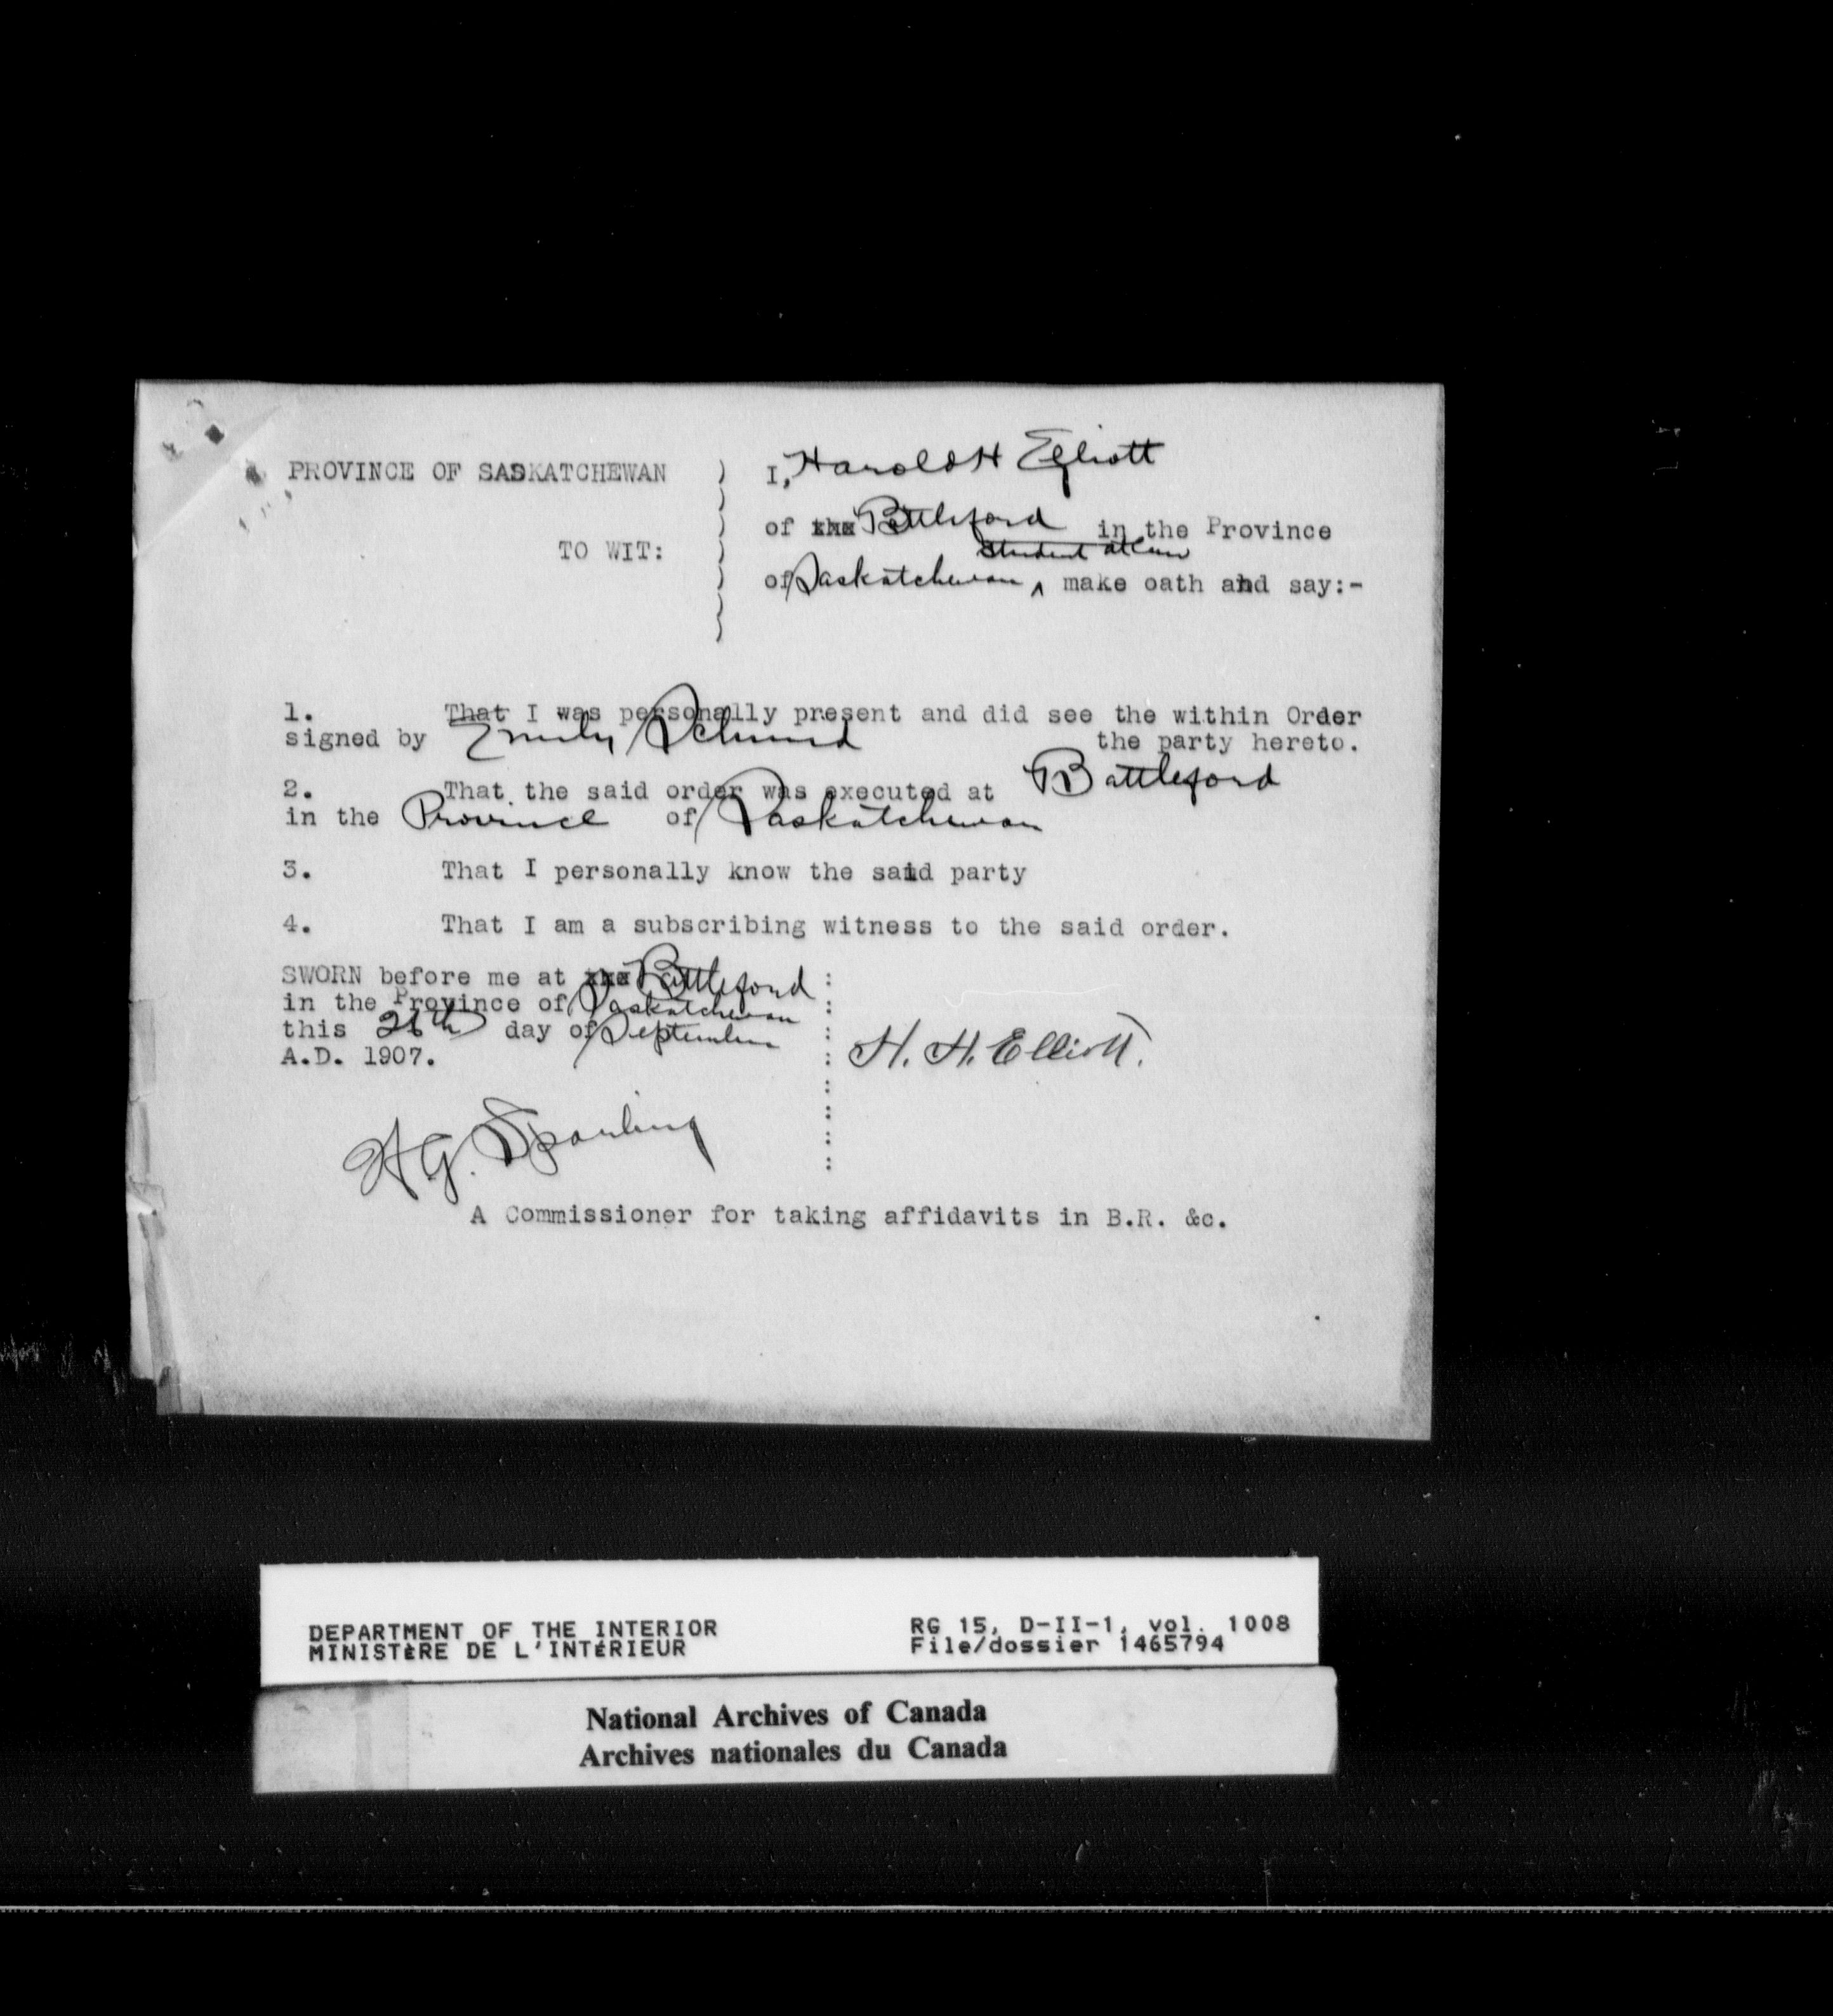 PROVINCE OF SASKATCHEWAN
TO WIT:
I, Harold H Elliott
of the Battleford in the Province
student at law
of Saskatchewan ^ make oath and say:-
1. That I was personally present and did see the within Order
signed by Emily Schmid the party hereto.
2. That the said order was executed at Battleford
in the Province of Saskatchewan
3. That I personally know the said party
4. That I am a subscribing witness to the said order.
SWORN before me at the Battleford
in the Province of Saskatchewan
this 26th day of September
A.D. 1907.
H. H. Elliott.
H G. Sparling
A Commissioner for taking affidavits in B.R. &c.
DEPARTMENT OF THE INTERIOR
MINISTÈRE DE L'INTÉRIEUR
RG 15, D-II-1, vol. 1008
File/dossier 1465794
National Archives of Canada
Archives nationales du Canada